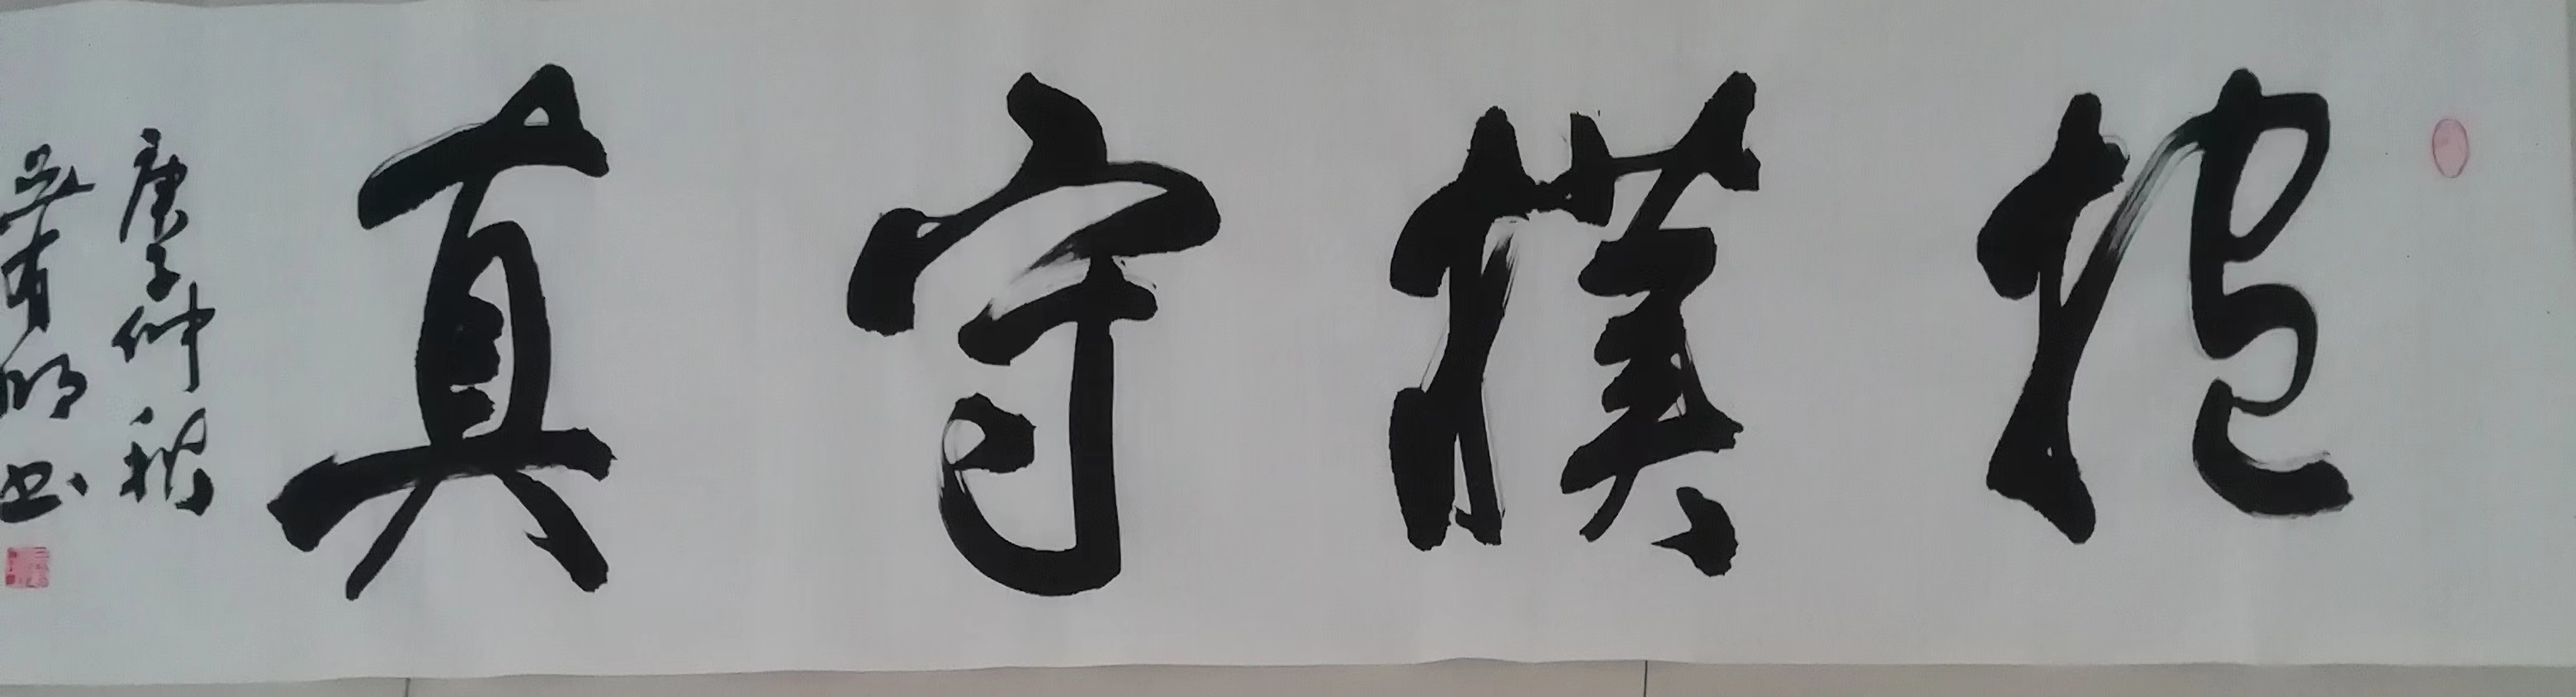 抱樸守真
庚子仲秋
明书